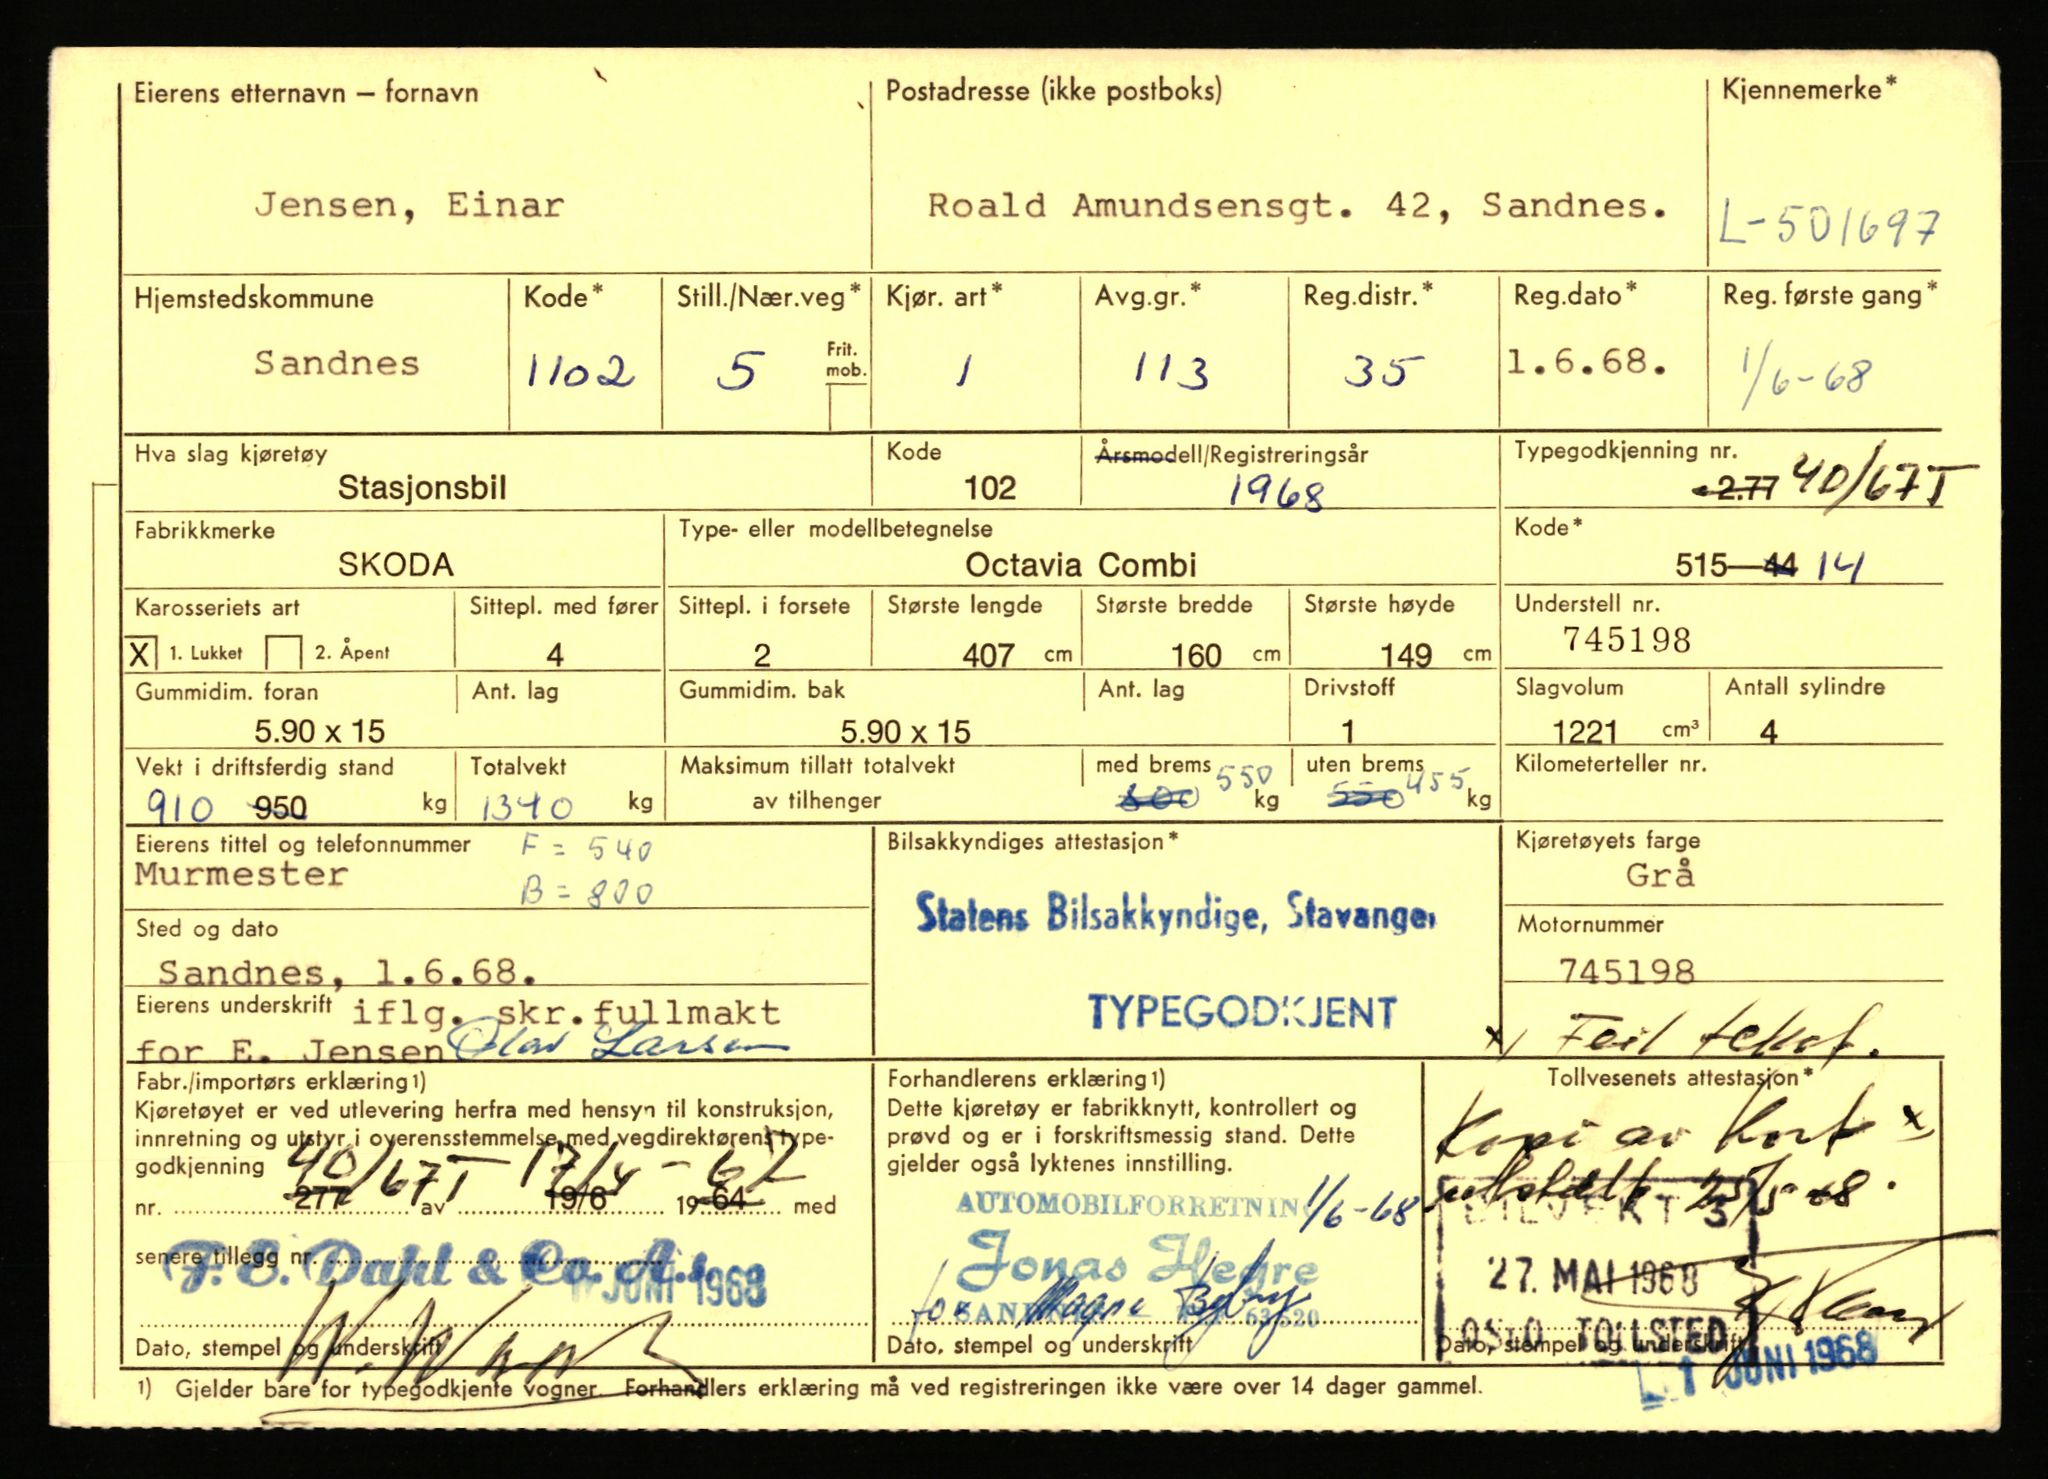 Eierens etternavn – fornavn
Postadresse (ikke postboks)
Kjennemerke*
Jensen, Einar
Roald Amundsensgt. 42, Sandnes.
L-501697
Hjemstedskommune
Kode*
Still./Nær.veg*
Kjør. art*
Avg.gr.*
Reg.distr.*
Reg.dato*
Reg. første gang*
Sandnes
1102
5
Frit. mob.
1
113
35
1.6.68.
1/6-68
Hva slag kjøretøy
Kode
Årsmodell/Registreringsår
Typegodkjenning nr.
Stasjonsbil
102
1968
2.77 40/67T
Fabrikkmerke
Type- eller modellbetegnelse
Kode*
SKODA
Octavia Combi
515—44 14
Karosseriets art
Sittepl. med fører
Sittepl. i forsete
Største lengde
Største bredde
Største høyde
Understell nr.
X 1. Lukket 2. Åpent
4
2
407 cm
160 cm
149 cm
745198
Gummidim. foran
Ant. lag
Gummidim. bak
Ant. lag
Drivstoff
Slagvolum
Antall sylindre
5.90 x 15
5.90 x 15
1
1221 cm³
4
Vekt i driftsferdig stand
Totalvekt
Maksimum tillatt totalvekt
med brems
uten brems
Kilometerteller nr.
910 950 kg
1340 kg
av tilhenger
800 550 kg
550 455 kg
Eierens tittel og telefonnummer
F = 540
B = 800
Murmester
Bilsakkyndiges attestasjon*
Kjøretøyets farge
Grå
Statens Bilsakkyndige, Stavanger
TYPEGODKJENT
Sted og dato
Sandnes, 1.6.68.
Motornummer
745198
Eierens underskrift iflg. skr.fullmakt
for E. Jensen Olav Larsen
x) Feil tekst.
Fabr./importørs erklæring 1)
Kjøretøyet er ved utlevering herfra med hensyn til konstruksjon,
innretning og utstyr i overensstemmelse med vegdirektørens type-
godkjenning 40/67T 17/4-67
nr. 277 av 19/8 19 64 med
senere tillegg nr.
F. E. Dahl & Co. A.s
JUNI 1968
Dato, stempel og underskrift
Forhandlerens erklæring 1)
Dette kjøretøy er fabrikknytt, kontrollert og
prøvd og er i forskriftsmessig stand. Dette
gjelder også lyktenes innstilling.
AUTOMOBILFORRETNIN 1/6-68
Jonas Hegre
for Magne
63520
Dato, stempel og underskrift
Tollvesenets attestasjon*
Kopi av kort x)
utstedt 25/5-68.
27. MAI 1968
OSLO TOLLSTED
Dato, stempel og underskrift
1 JUNI 1968
1) Gjelder bare for typegodkjente vogner. Forhandlers erklæring må ved registreringen ikke være over 14 dager gammel.